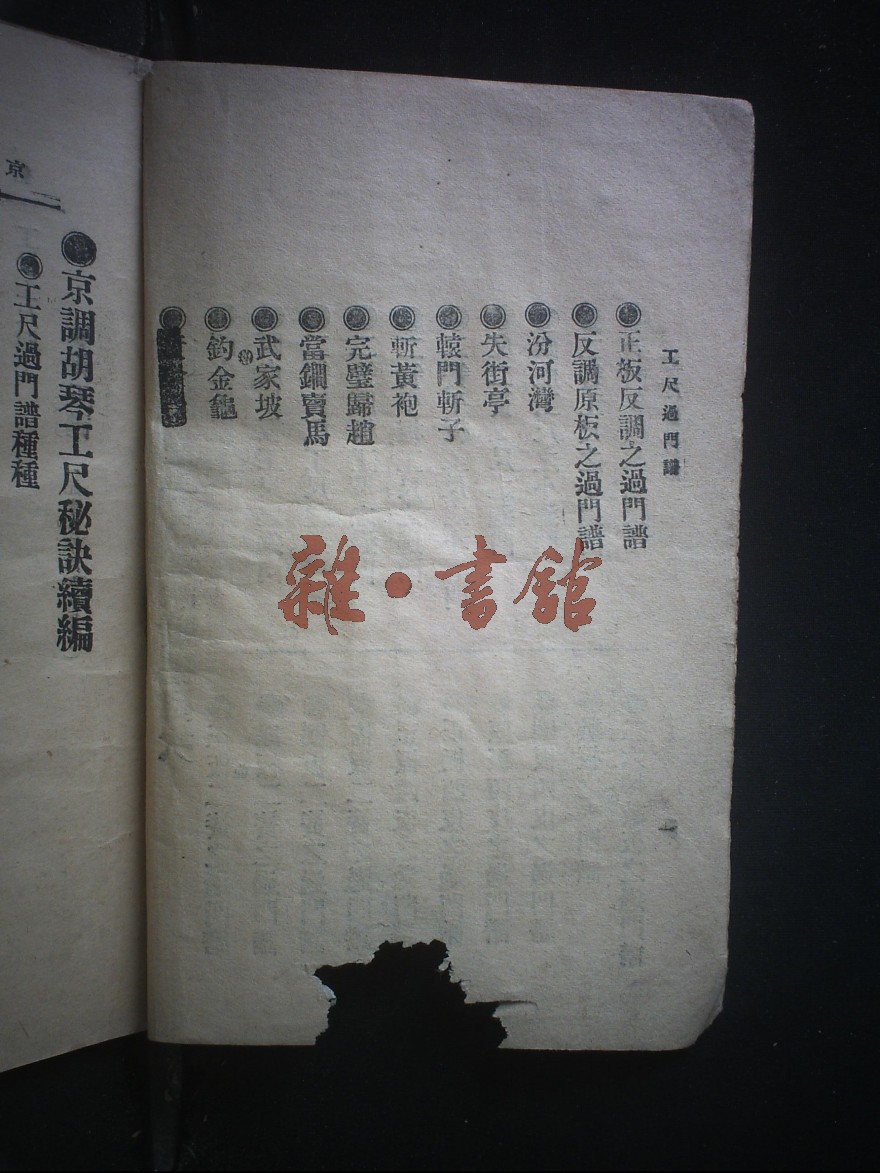 工尺過門譜
正板反調之過門譜
反調原板之過門譜
汾河灣
失街亭
轅門斬子
斬黃袍
完璧歸趙
當鐧賣馬
武家坡
釣金龜
京
京調胡琴工尺秘訣續編
工尺過門譜種種
雜·書館